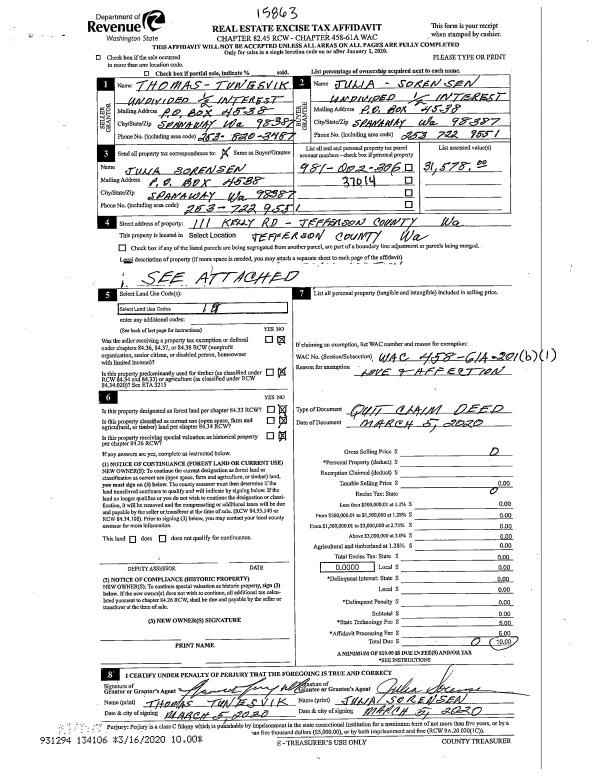 15863
Department of
Revenue
Washington State
REAL ESTATE EXCISE TAX AFFIDAVIT
CHAPTER 82.45 RCW - CHAPTER 458-61A WAC
This form is your receipt
when stamped by cashier.
THIS AFFIDAVIT WILL NOT BE ACCEPTED UNLESS ALL AREAS ON ALL PAGES ARE FULLY COMPLETED
Only for sales in a single location code on or after January 1, 2020.
PLEASE TYPE OR PRINT
Check box if the sale occurred
in more than one location code.
Check box if partial sale, indicate % sold.
List percentage of ownership acquired next to each name.
1 Name THOMAS - TUNGSVIK
UNDIVIDED 1/2 INTEREST
SELLER GRANTOR
Mailing Address P.O. BOX 4538
City/State/Zip SPANAWAY Wa 98387
Phone No. (including area code) 253-820-3487
2 Name JULIA - SORENSEN
UNDIVIDED 1/2 INTEREST
BUYER GRANTEE
Mailing Address P.O. Box 4538
City/State/Zip SPANAWAY Wa 98387
Phone No. (including area code) 253 722 9551
3 Send all property tax correspondence to: X Same as Buyer/Grantee
Name JULIA SORENSEN
Mailing Address P.O. BOX 4538
City/State/Zip SPANAWAY Wa 98387
Phone No. (including area code) 253-722 9551
List all real and personal property tax parcel
account numbers - check box if personal property
981-002-306
37014
List assessed value(s)
31,578.00
4 Street address of property: 111 KELLY RD - JEFFERSON COUNTY Wa
This property is located in Select Location JEFFERSON COUNTY Wa
Check box if any of the listed parcels are being segregated from another parcel, are part of a boundary line adjustment or parcels being merged.
Legal description of property (if more space is needed, you may attach a separate sheet to each page of the affidavit)
SEE ATTACHED
5 Select Land Use Code(s):
enter any additional codes:
(See back of last page for instructions)
YES NO
Was the seller receiving a property tax exemption or deferral
under chapters 84.36, 84.37, or 84.38 RCW (nonprofit
organization, senior citizen, or disabled person, homeowner
with limited income)?
Is this property predominantly used for timber (as classified under
RCW 84.34 and 84.33) or agriculture (as classified under RCW
84.34.020)? See ETA 3215
6
YES NO
Is this property designated as forest land per chapter 84.33 RCW?
Is this property classified as current use (open space, farm and
agricultural, or timber) land per chapter 84.34 RCW?
Is this property receiving special valuation as historical property
per chapter 84.26 RCW?
If any answers are yes, complete as instructed below.
(1) NOTICE OF CONTINUANCE (FOREST LAND OR CURRENT USE)
NEW OWNER(S): To continue the current designation as forest land or
classification as current use (open space, farm and agriculture, or timber) land,
you must sign on (3) below. The county assessor must then determine if the
land transferred continues to qualify and will indicate by signing below. If the
land no longer qualifies or you do not wish to continue the designation or classi-
fication, it will be removed and the compensating or additional taxes will be due
and payable by the seller or transferor at the time of sale. (RCW 84.33.140 or
RCW 84.34.108). Prior to signing (3) below, you may contact your local county
assessor for more information.
This land does does not qualify for continuance.
DEPUTY ASSESSOR DATE
(2) NOTICE OF COMPLIANCE (HISTORIC PROPERTY)
NEW OWNER(S): To continue special valuation as historic property, sign (3)
below. If the new owner(s) does not wish to continue, all additional tax calcu-
lated pursuant to chapter 84.26 RCW, shall be due and payable by the seller or
transferor at the time of sale.
(3) NEW OWNER(S) SIGNATURE
PRINT NAME
7 List all personal property (tangible and intangible) included in selling price.
If claiming an exemption, list WAC number and reason for exemption:
WAC No. (Section/Subsection) WAC 458-61A-201(b)(1)
Reason for exemption
LOVE & AFFECTION
Type of Document QUIT CLAIM DEED
Date of Document MARCH 5, 2020
Gross Selling Price $ 0
*Personal Property (deduct) $
Exemption Claimed (deduct) $
Taxable Selling Price $ 0.00
Excise Tax: State 0
Less than $500,000.01 at 1.1% $ 0.00
From $500,000.01 to $1,500,000 at 1.28% $ 0.00
From $1,500,000.01 to $3,000,000 at 2.75% $ 0.00
Above $3,000,000 at 3.0% $ 0.00
Agricultural and timberland at 1.28% $ 0.00
Total Excise Tax: State $ 0.00
0.0000 Local $ 0.00
*Delinquent Interest: State $
Local $
*Delinquent Penalty $ 0.00
Subtotal $ 0.00
*State Technology Fee $ 5.00
*Affidavit Processing Fee $ 5.00
Total Due $ 0 10.00
A MINIMUM OF $10.00 IS DUE IN FEE(S) AND/OR TAX
*SEE INSTRUCTIONS
8 I CERTIFY UNDER PENALTY OF PERJURY THAT THE FOREGOING IS TRUE AND CORRECT
Signature of
Grantor or Grantor's Agent
Name (print) THOMAS TUNGSVIK
Date & city of signing MARCH 5, 2020
Signature of
Grantee or Grantee's Agent Julia Sorensen
Name (print) JULIA SORENSEN
Date & city of signing MARCH 5, 2020
Perjury: Perjury is a class C felony which is punishable by imprisonment in the state correctional institution for a maximum term of not more than five years, or by a
fine in an amount fixed by the court of not more than five thousand dollars ($5,000.00), or by both imprisonment and fine (RCW 9A.20.020(1C)).
931294 134106 *3/16/2020 10.00*
E - TREASURER'S USE ONLY
COUNTY TREASURER